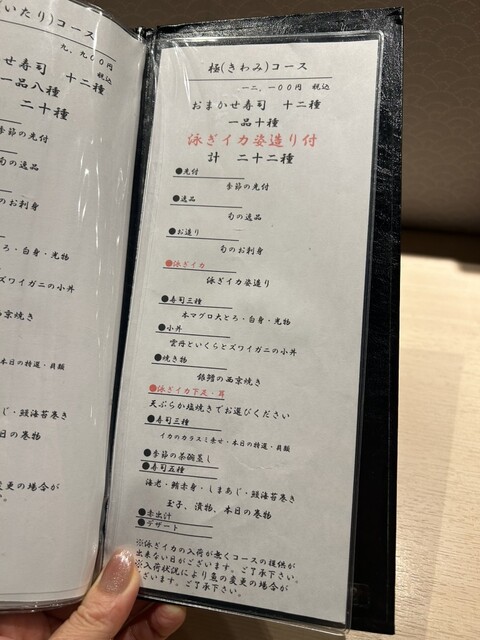 いたり)コース
九,九〇〇円 税込
かせ寿司 十二種
一品八種
二十種
季節の先付
旬の逸品
のお刺身
とろ・白身・光物
ズワイガニの小丼
京焼き
本日の特選・貝類
あじ・鰻海苔巻き
日の巻物
更の場合が
極(きわみ)コース
一二,一〇〇円 税込
おまかせ寿司 十二種
一品十種
泳ぎイカ姿造り付
計 二十二種
●先付
季節の先付
●逸品
旬の逸品
●お造り
旬のお刺身
●泳ぎイカ
泳ぎイカ姿造り
●寿司三種
本マグロ大とろ・白身・光物
●小丼
雲丹といくらとズワイガニの小丼
●焼き物
銀鱈の西京焼き
●泳ぎイカ下足・耳
天ぷらか塩焼きでお選びください
●寿司三種
イカのカラスミ乗せ・本日の特選・貝類
●季節の茶碗蒸し
●寿司五種
海老・鮪赤身・しまあじ・鰻海苔巻き
玉子、漬物、本日の巻物
●赤出汁
●デザート
※泳ぎイカの入荷が無くコースの提供が
出来ない日がございます。ご了承下さい。
※入荷状況により魚の変更の場合が
ざいます。ご了承下さい。